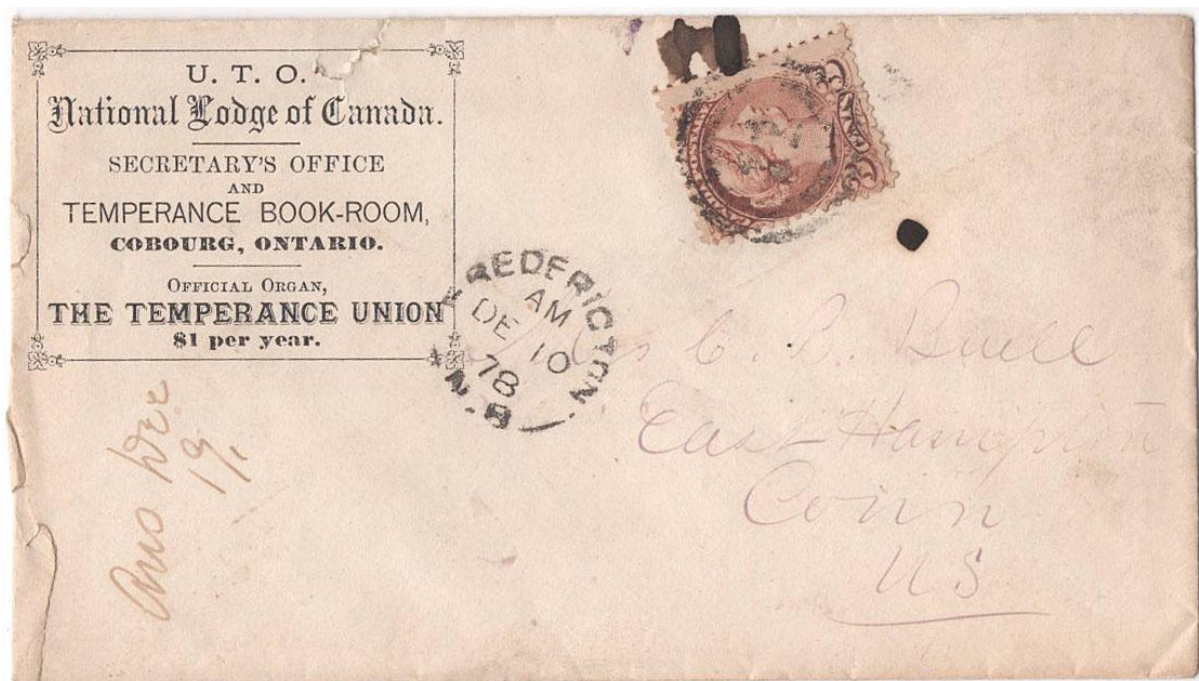 U. T. O.
National Lodge of Canada.
SECRETARY'S OFFICE
AND
TEMPERANCE BOOK-ROOM,
COBOURG, ONTARIO.
OFFICIAL ORGAN,
THE TEMPERANCE UNION
$1 per year.
FREDERICTON
AM
DE 10
78
N.B
C. Buell
East Hampton
Conn
US
Ans Dec
19,